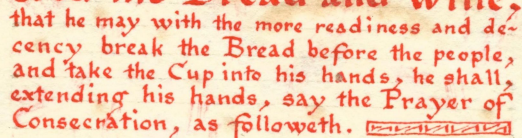 Bread and Wine,
that he may with the more readiness and de-
cency break the Bread before the people,
and take the Cup into his hands, he shall,
extending his hands, say the Prayer of
Consecration, as followeth.